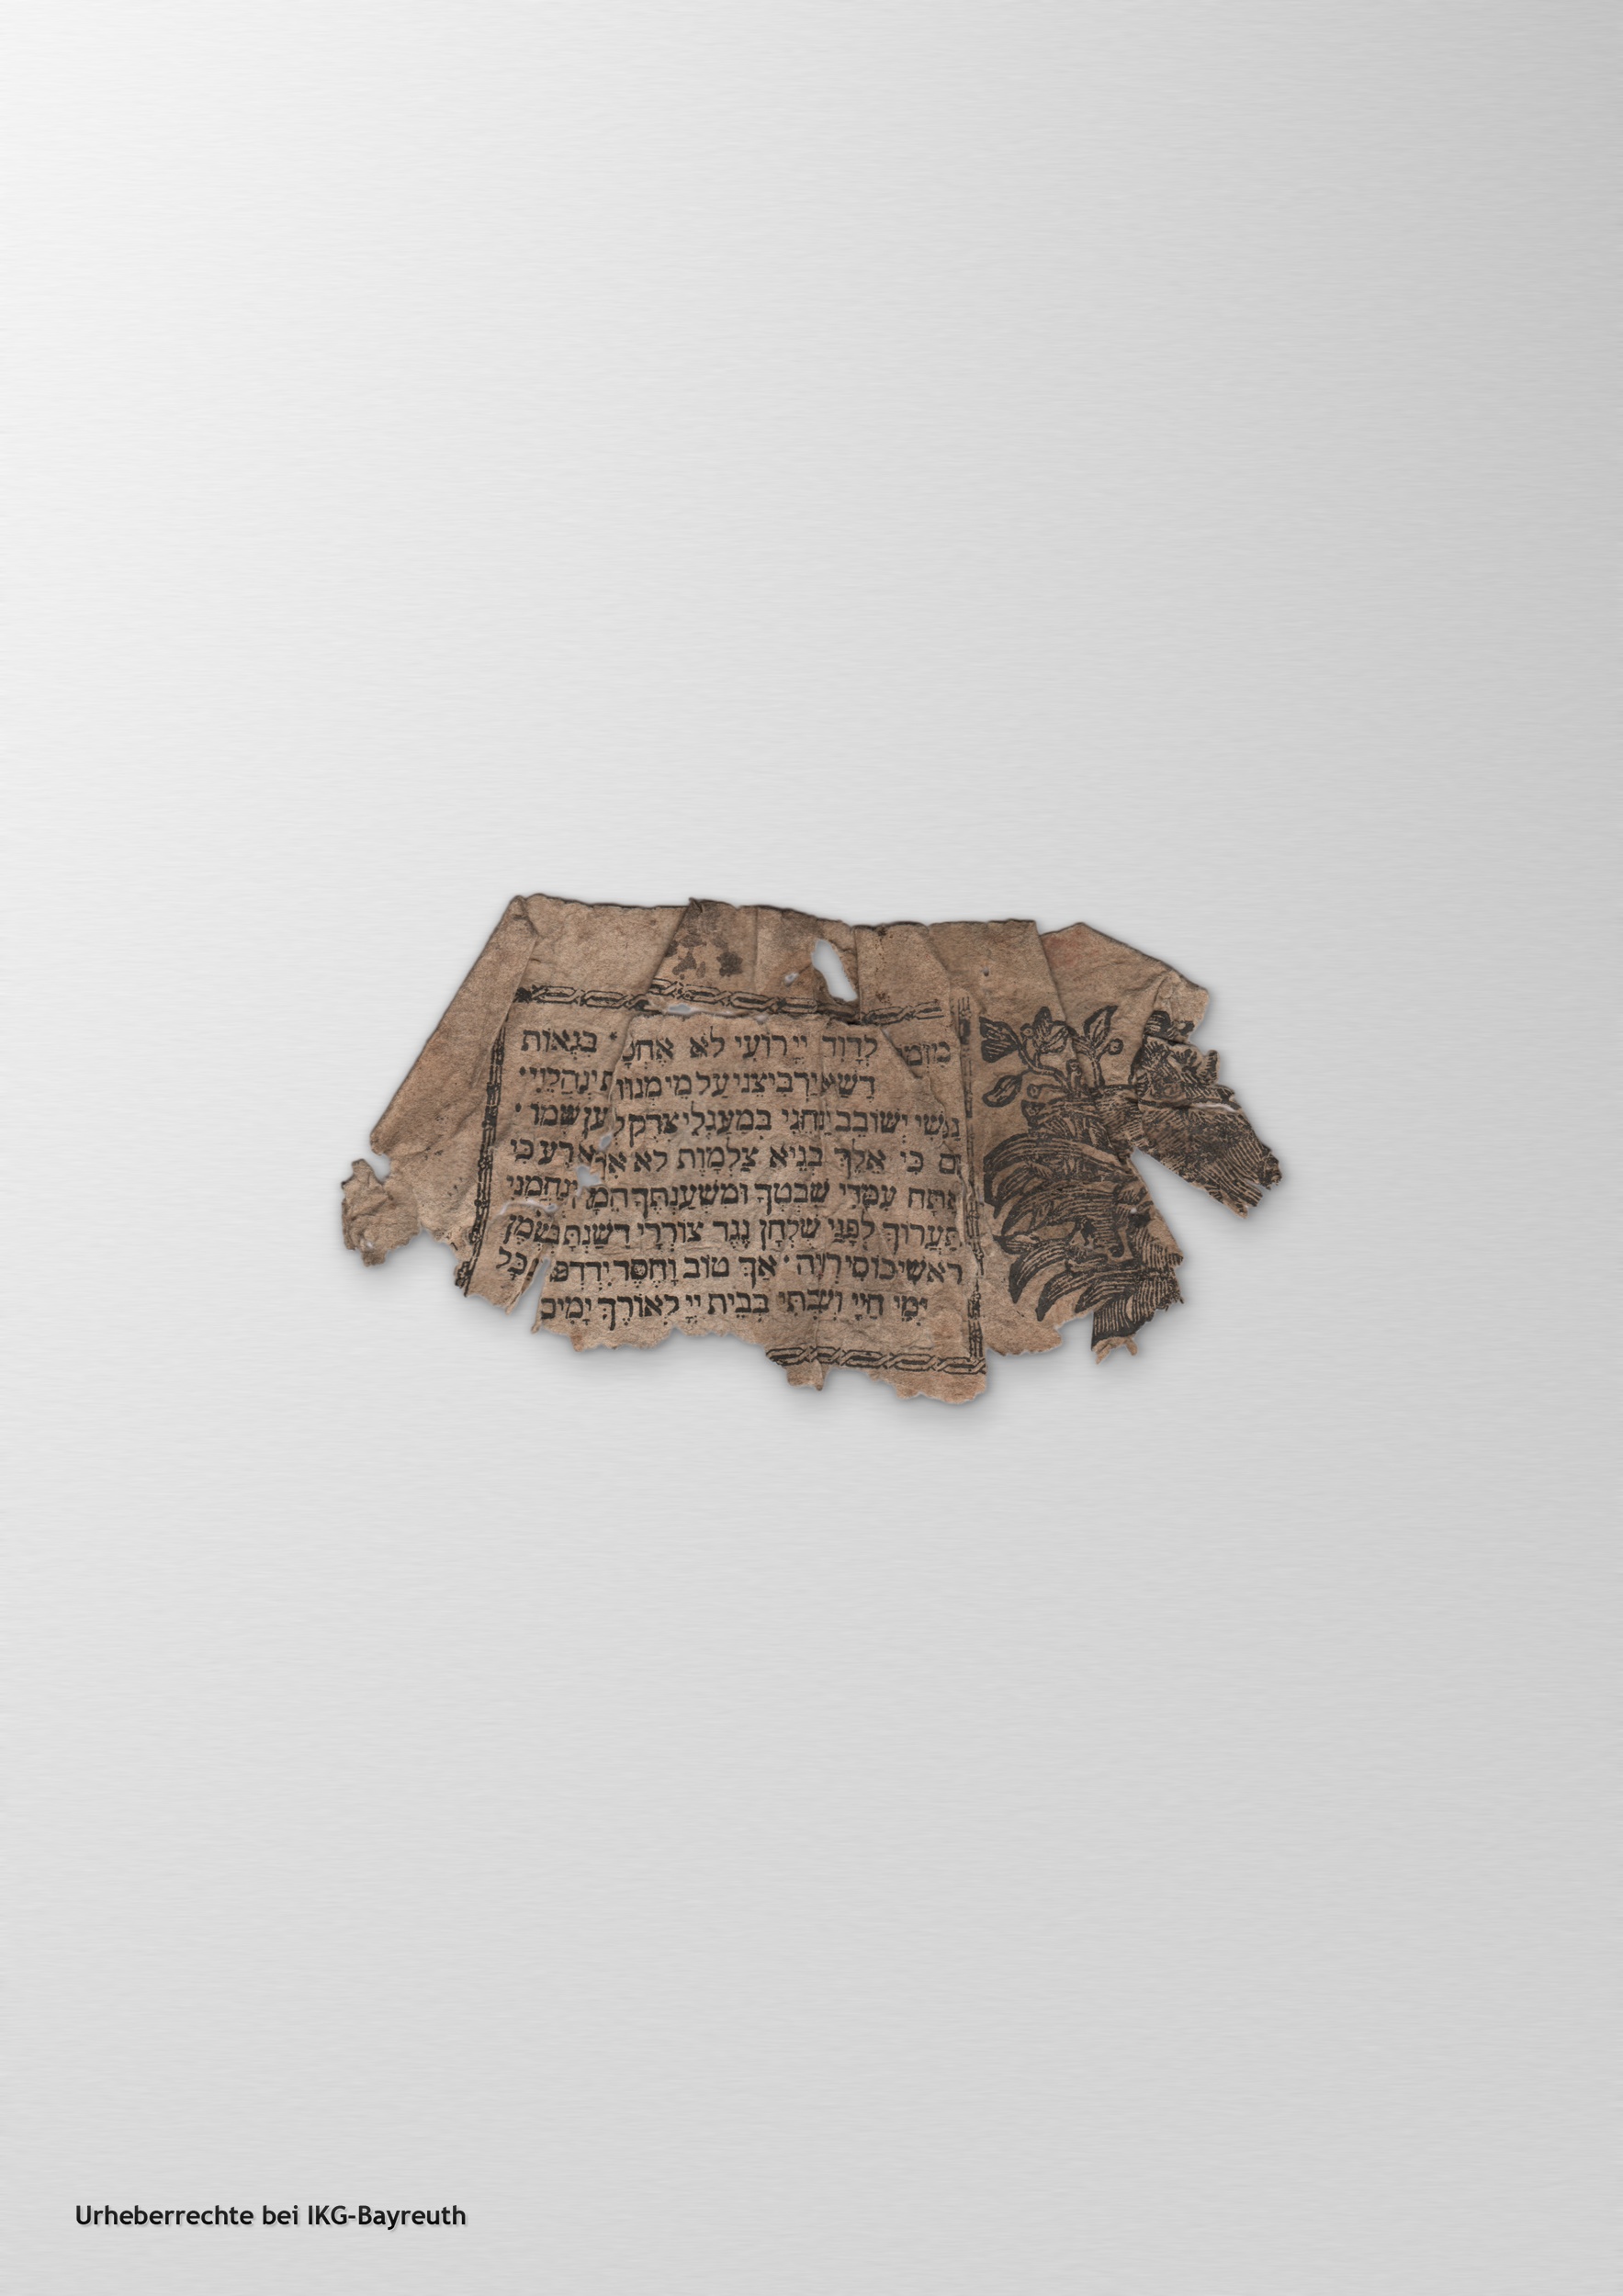 לְדָוִד יְיָ רוֹעִי לֹא בִּנְאוֹת
דֶשֶׁא יַרְבִּיצֵנִי עַל מֵי יְנַהֲלֵנִי׃
נַפְשִׁי יְשׁוֹבֵב יַנְחֵנִי בְּמַעְגְלֵי צֶדֶק שְׁמוֹ׃
גַם כִּי אֵלֵךְ בְּגֵיא צַלְמָוֶת לֹא רָע כִּי
אַתָּה עִמָּדִי שִׁבְטְךָ וּמִשְׁעַנְתֶּךָ יְנַחֲמֻנִי
תַּעֲרוֹךְ לְפָנַי שֻׁלְחָן נֶגֶד צוֹרְרָי דִּשַׁנְתָּ בַשֶּׁמֶן
רֹאשִׁי כּוֹסִי רְוָיָה׃ אַךְ טוֹב וָחֶסֶד כָּל
יְמֵי חַיָּי וְשַׁבְתִּי בְּבֵית יְיָ לְאוֹרֶךְ
Urheberrechte bei IKG-Bayreuth